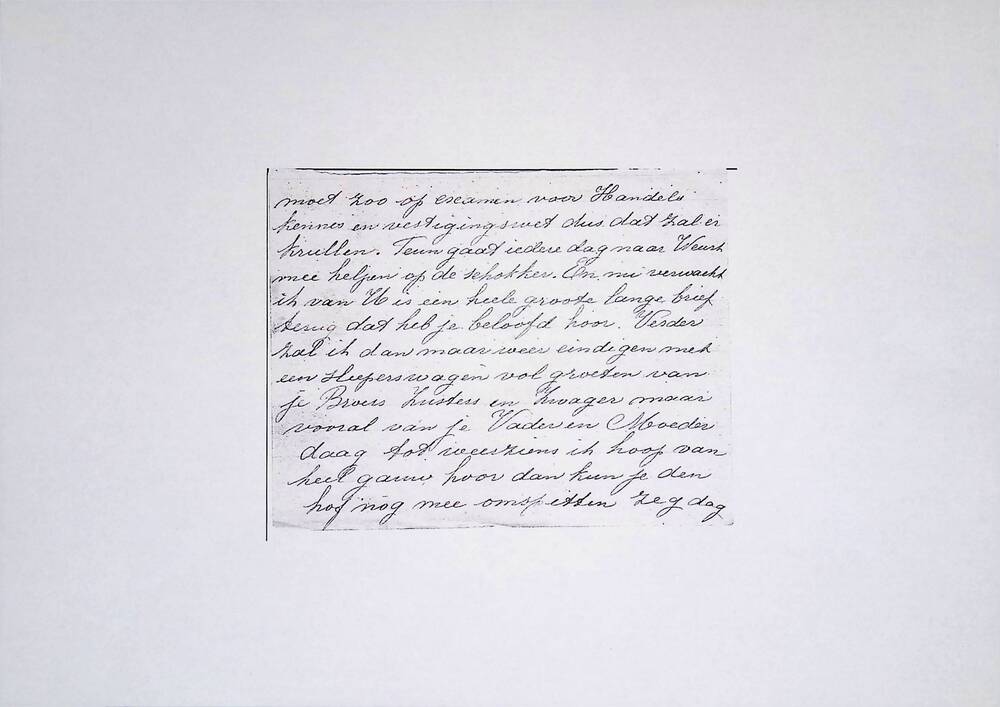 moet zoo op examen voor Handels
kennis en vestigingswet dus dat zal er
krullen. Teun gaat iedere dag naar Weurt
mee helpen op de schokker. En nu verwacht
ik van U is een heele groote lange brief
terug dat heb je beloofd hoor. Verder
zal ik dan maar weer eindigen met
een sleeperswagen vol groeten van
je Broers Zusters en Zwager maar
vooral van je Vader en Moeder
daag tot weerziens ik hoop van
heel gauw hoor dan kun je den
hof nog mee omspitten zeg dag